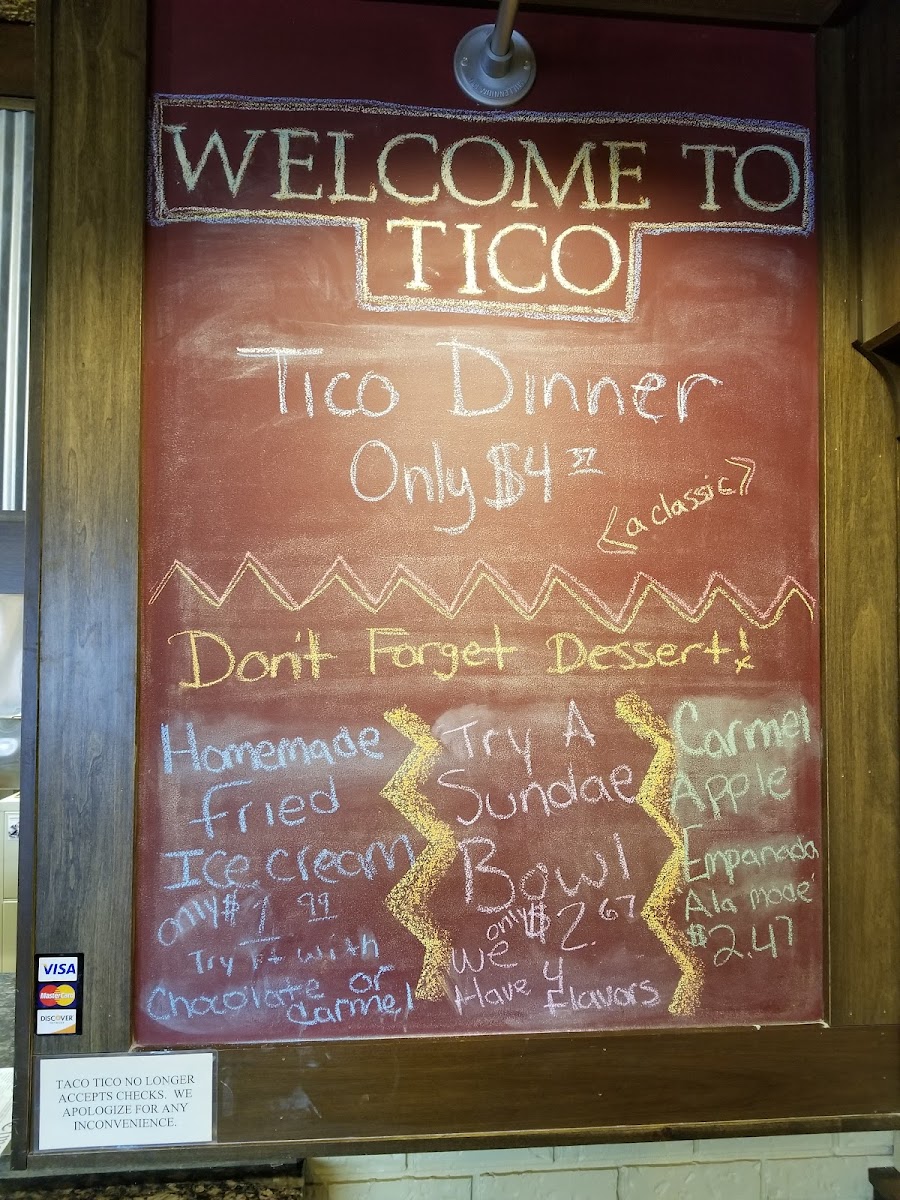 WELCOME TO
TICO
Tico Dinner
Only $4 37
<a classic>
Don't Forget Dessert!
Homemade
Fried
Ice cream
only $1 99
Try It with
Chocolate or
Carmel
Try A
Sundae
Bowl
only $2.67
We
Have 4
Flavors
Carmel
Apple
Empanada
Ala mode'
$2.47
VISA
MasterCard
DISCOVER
TACO TICO NO LONGER
ACCEPTS CHECKS. WE
APOLOGIZE FOR ANY
INCONVENIENCE.